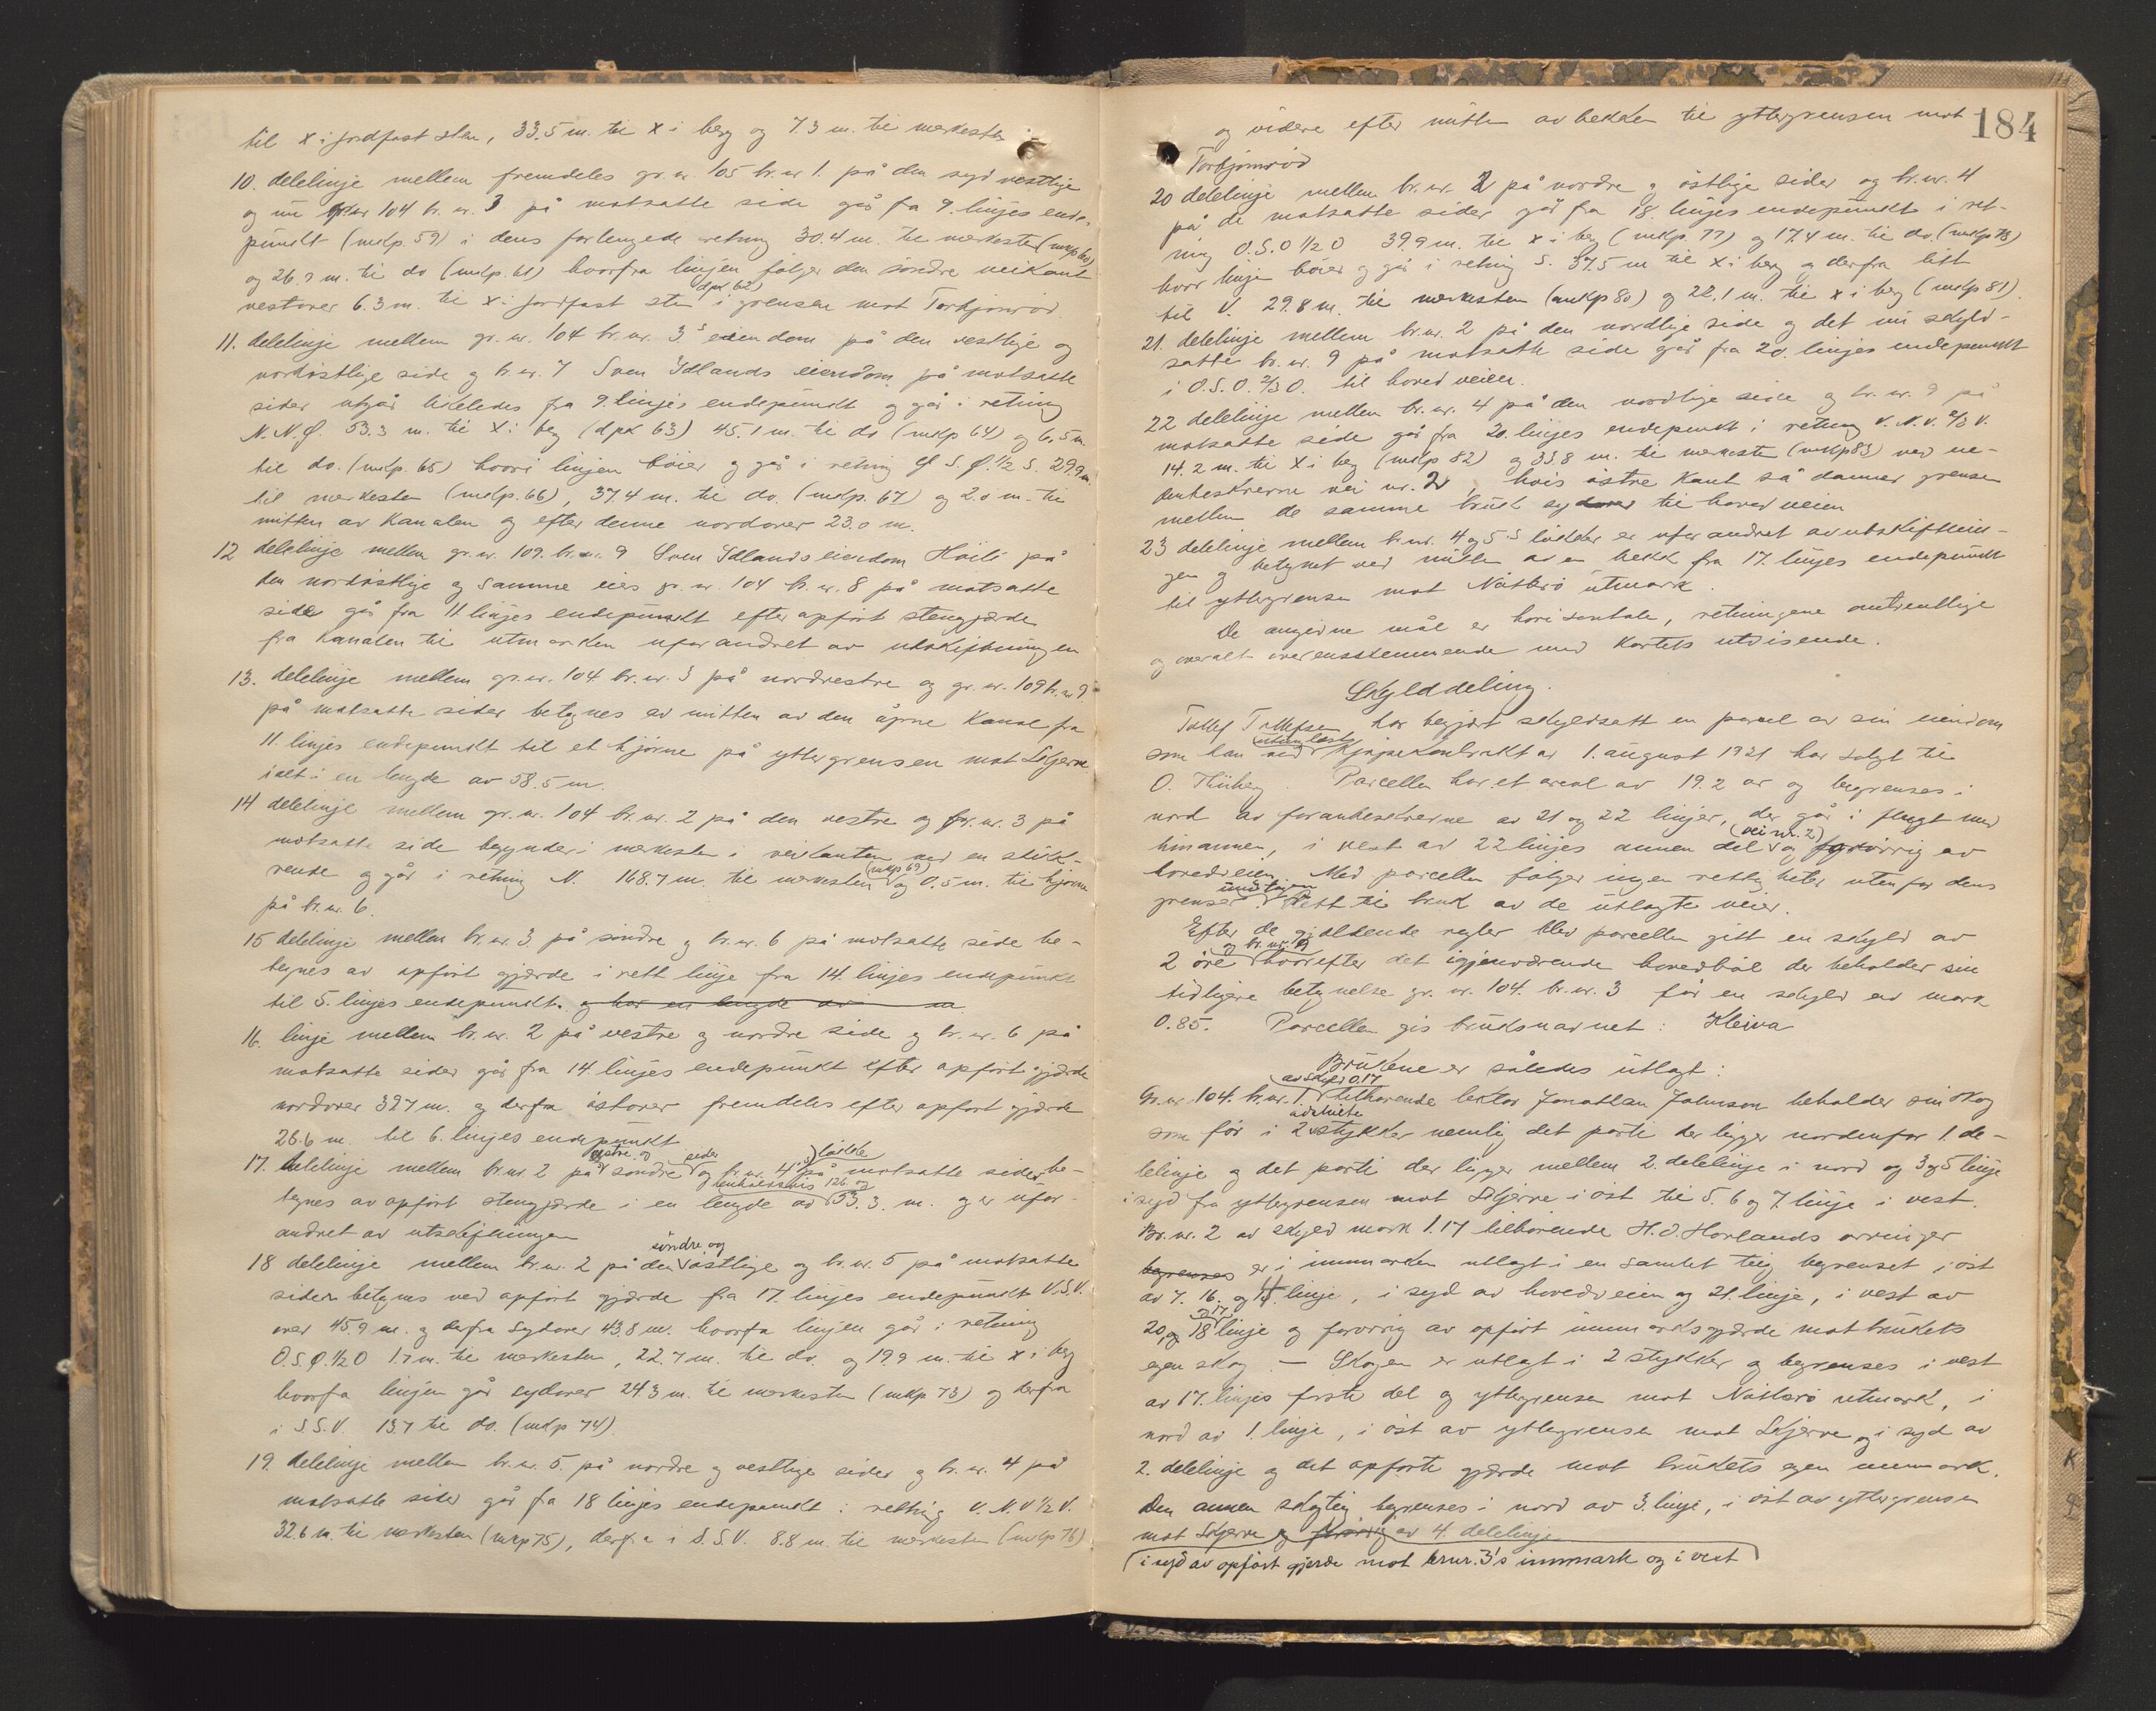 til x i jordfast sten, 33.5 m. til x i berg og 7.3 m. til merkesten
10. delelinje mellem fremdeles gr. nr. 105 br. nr. 1. på den syd vestlige
og nu gr. nr. 104 br. nr. 3 på motsatte side går fra 9. linjes ende-
punkt (mkp. 59) i dens forlengede retning 30.4 m. til merkesten (mkp 60)
og 26.9 m. til do (mkp. 61) hvorfra linjen følger den søndre veikant
vestover 6.3 m. til x i jordfast sten (dpk 62) i grensen mot Torkjønrød.
11. delelinje mellem gr. nr. 104 br. nr. 3's eiendom på den vestlige og
nordøstlige side og br. nr. 7 Sven Ydlands eiendom på motsatte
sider utgår likeledes fra 9. linjes endepunkt og går i retning
N.N.Ø. 53.3 m. til X i berg (dpk 63) 45.1 m. til do (mkp 64) og 6.5 m.
til do. (mkp. 65) hvori linjen bøier og går i retning Ø S. Ø. 1/2 S. 29.9 m.
til merkesten (mkp. 66), 37.4 m. til do. (mkp. 67) og 2.0 m. til
mitten av Kanalen og efter denne nordover 23.0 m.
12 delelinje mellem gr. nr. 109. br. nr. 9 Sven Ydlands eiendom Høili på
den nordøstlige og samme eies gr. nr. 104 br. nr. 8 på motsatte
side går fra 11 linjes endepunkt efter opført stengjerde
fra Kanalen til utmarken uforandret av utskiftningen
13. delelinje mellem gr. nr. 104. br. nr. 3 på nordvestre og gr. nr. 109 br. nr 9
på motsatte sider betegnes av mitten av den åpne Kanal fra
11. linjes endepunkt til et hjørne på yttergrensen mot Skjerve
ialt i en lengde av 58.5 m.
14 delelinje mellem gr. nr. 104 br. nr. 2 på den vestre og br. nr. 3 på
motsatte side begynder i merkesten i veikanten ved en stikk-
rende og går i retning N. 168.7 m. til merkesten (mkp 69) og 0.5 m. til hjørne
på br. nr. 6.
15 delelinje mellem br. nr. 3. på søndre og br. nr. 6 på motsatte side be-
tegnes av opført gjerde i rett linje fra 14. linjes endepunkt
til 5. linjes endepunkt. og har en lengde av m
16. linje mellem br. nr. 2 på vestre og nordre side og br. nr. 6 på
motsatte sider går fra 14 linjes endepunkt efter opført gjerde
nordover 397 m. og derfra østover fremdeles efter opført gjerde
26.6 m. til 6. linjes endepunkt
17. delelinje mellem br. nr. 2 på østre og søndre sider og br. nr. 4's løkke på motsatte sider be-
tegnes av opført stengjerde i en lengde av henholdsvis 126 og 53.3. m. og er ufor-
andret av utskiftningen
18 delelinje mellem br. nr. 2 på den søndre og østlige og br. nr. 5 på motsatte
sider betegnes ved opført gjerde fra 17. linjes endepunkt V.S.V.
over 45.9 m. og derfra sydover 43.8 m. hvorfra linjen går i retning
O.S.Ø. 1/2 O 1.7 m. til merkesten, 22.7 m. til do. og 19.9 m. til x i berg
hvorfra linjen går sydover 24.3 m. til merkesten (mkp 73) og derfra
i S.S.V. 13.7 til do. (mkp 74).
19. delelinje mellem br. nr. 5. på nordre og vestlige sider og br. nr. 4 på
motsatte sider går fra 18 linjes endepunkt i retning V. N. V 1/2 V.
32.6 m. til merkesten (mkp 75), derfra i S.S.V. 8.8 m. til merkesten (mkp 76)
184
og videre efter mitten av bekken til yttergrensen mot
Torkjønrød
20 delelinje mellem br. nr. 2 på nordre og østlige sider og br. nr. 4
på de motsatte sider går fra 18. linjes endepunkt i ret-
ning O.S.O 1/2 O 39.9 m. til x i berg (mkp. 77) og 17.4 m. til do. (mkp 78)
hvor linjen bøier og går i retning S. 37.5 m til x i berg og derfra litt
til V. 29.8 m. til merkesten (mkp 80) og 22.1 m. til x i berg (mkp 81).
21. delelinje mellem br. nr. 2 på den nordlige side og det nu skyld-
satte br. nr. 9 på motsatte side går fra 20. linjes endepunkt
i O.S.O. 2/3 O. til hovedveien.
22 delelinje mellem br. nr. 4 på den nordlige side og br. nr. 9 på
motsatte side går fra 20. linjes endepunkt i retning V. N. V. 2/3 V.
14.2 m. til X i berg (mkp 82) og 33.8 m. til merkesten (mkp 83) ved ne-
denbeskrevne vei nr. 2, hvis østre kant så danner grensen
mellem de samme bruk sydover til hovedveien
23 delelinje mellem br. nr. 4 og 5's løkker er uforandret av utskiftnin-
gen og betegnet ved mitten av en bekk fra 17. linjes endepunkt
til yttergrensen mot Nøtterø utmark.
De angivne mål er horisontale, retningene omtrentlige
og overalt overensstemmende med Kartets utvisende.
Skylddeling.
Tollef Tollefsen har begjært skyldsatt en parcel av sin eiendom
som han uten lest ved kjøpekontrakt av 1. august 1921 har solgt til
O. Thiberg. Parcellen har et areal av 19.2 ar og begrenses i
nord av foranbeskrevne av 21 og 22 linjer, der går i flugt med
hinannen, i vest av 22 linjes annen del (vei nr. 2) og forøvrig av
hovedveien. Med parcellen følger ingen rettigheter utenfor dens
grenser undtagen rett til bruk av de utlagte veier.
Efter de gjeldende regler blev parcellen gitt en skyld av
2 øre og br. nr. 9 hvorefter det igjenværende hovedbøl der beholder sin
tidligere betegnelse gr. nr. 104. br. nr. 3 får en skyld av mark
0.85. Parcellen gis bruksnavnet: Kleiva
Brukene er således utlagt:
Gr. nr. 104. br. nr. 1. av skyld 0.17 tilhørende lektor Jonathan Johnson beholder sin skog
som før i 2 adskilte stykker nemlig det parti der ligger nordenfor 1. de-
lelinje og det parti der ligger mellem 2. delelinje i nord og 3 og 5 linje
i syd fra yttergrensen mot Skjerve i øst til 5. 6 og 7. linje i vest.
Br. nr. 2 av skyld mark 1.17 tilhørende H. O. Horlands arvinger
begrenses er i innmarken utlagt i en samlet teig begrenset i øst
av 7. 16. og 14 linje, i syd av hovedveien og 21. linje, i vest av
20, og 18 og 17 linje og forøvrig av opført innmarksgjerde mot brukets
egen skog. — Skogen er utlagt i 2 stykker og begrenses i vest
av 17. linjes første del og yttergrensen mot Nøtterø utmark, i
nord av 1. linje, i øst av yttergrensen mot Skjerve og i syd av
2. delelinje og det opførte gjerde mot brukets egen innmark.
Den annen skogteig begrenses i nord av 3. linje, i øst av yttergrensen
mot Skjerve og forøvrig av 4. delelinje
i syd av opført gjerde mot br nr. 3's innmark og i vest